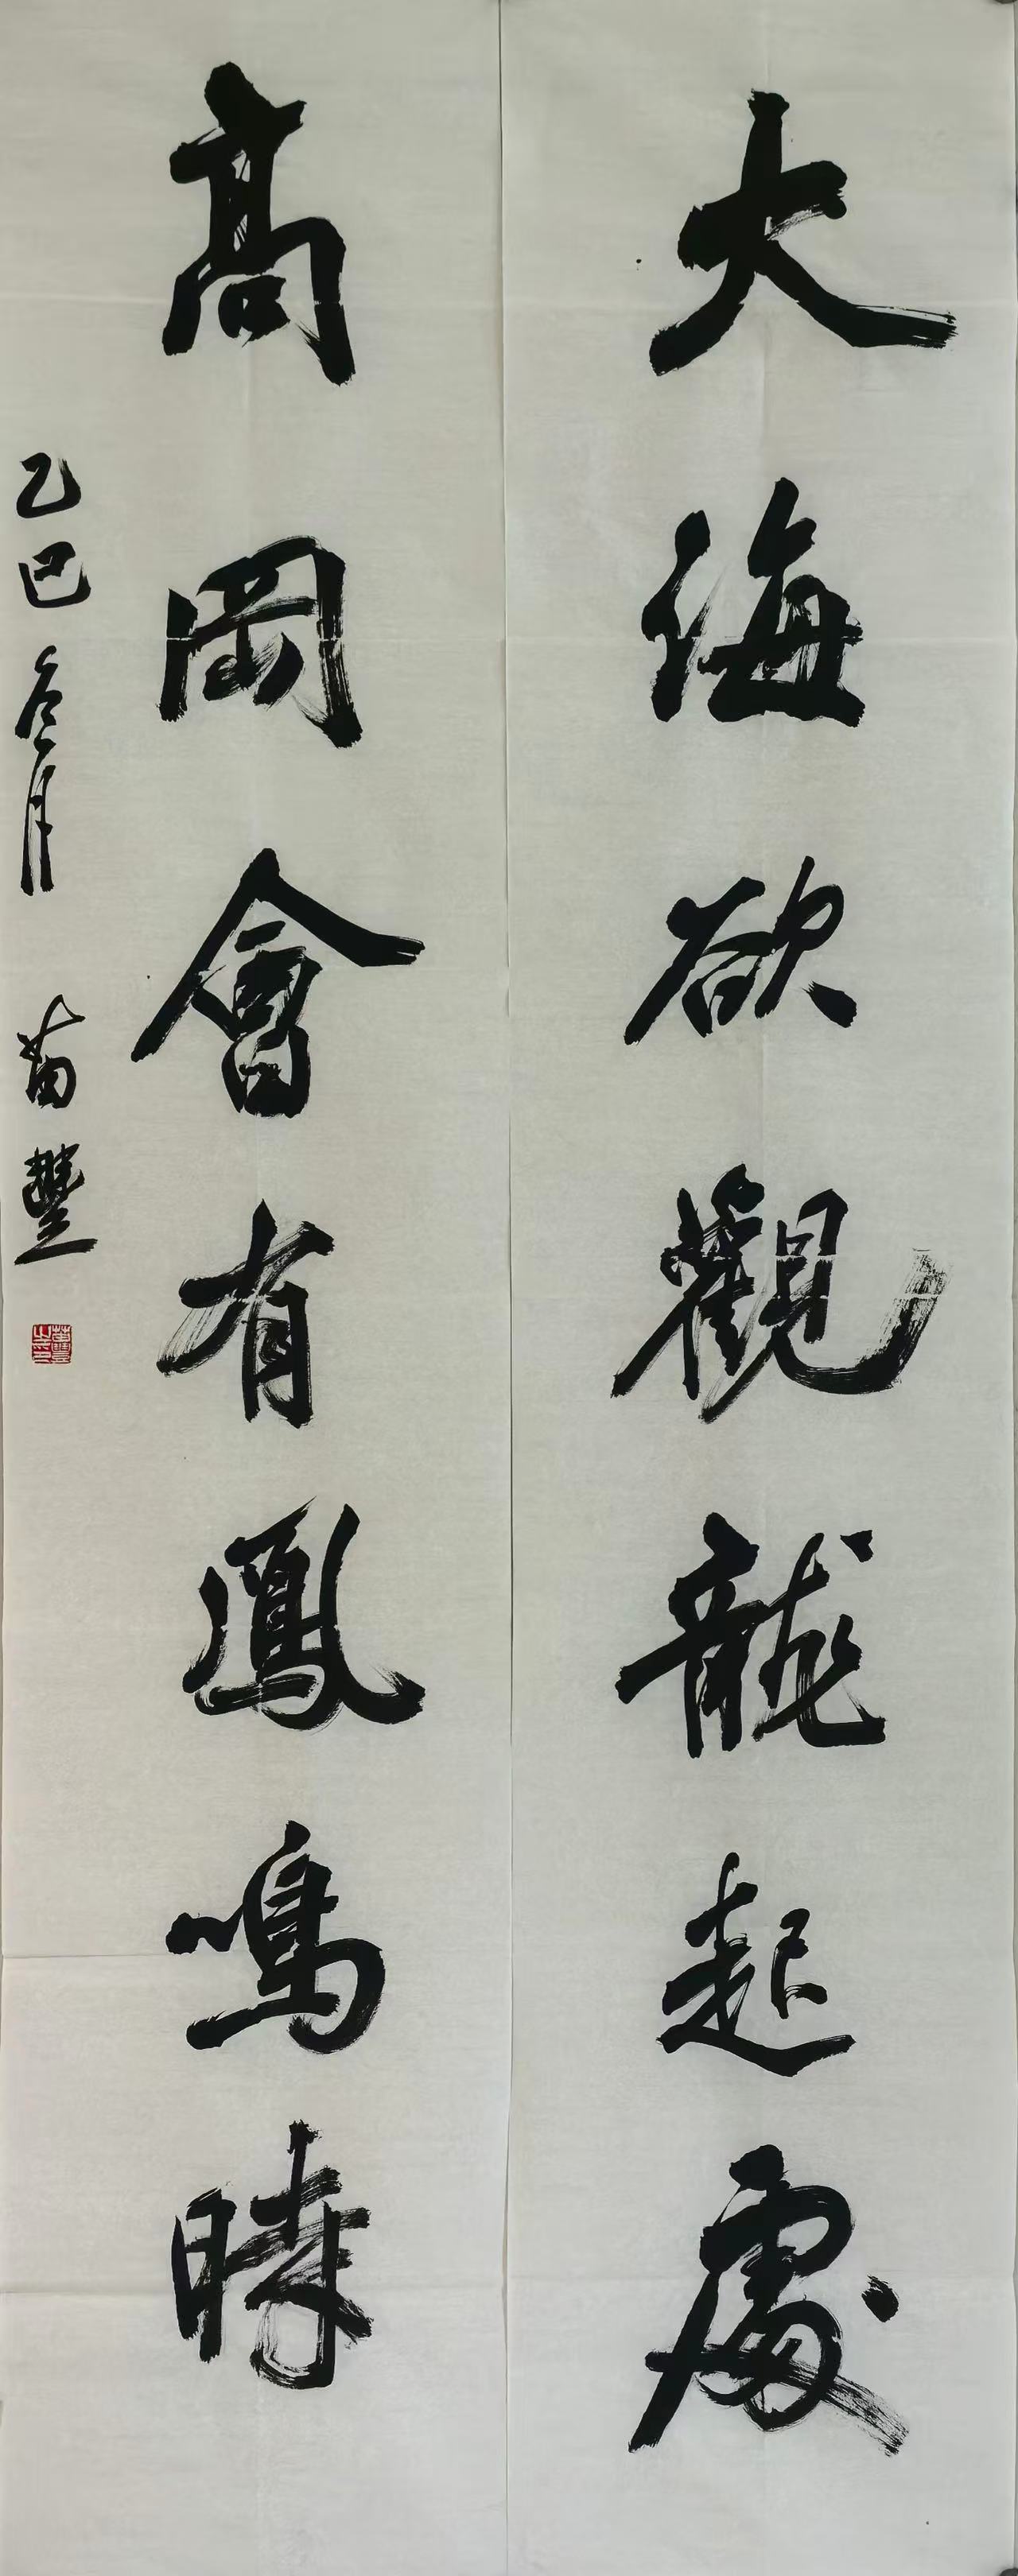 大海欲觀龍起處
高岡會有鳳鳴時
乙巳冬月 苗豐